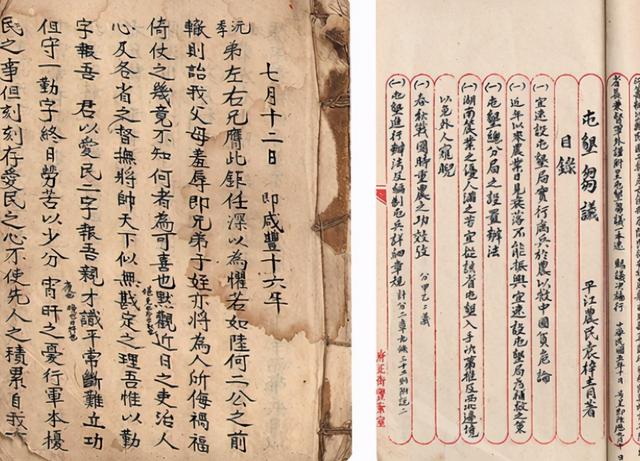 七月十二日 即咸豐十六年
沅季弟左右兄膺此鉅任深以為懼若如陸何二公之前
轍則詒我父母羞辱即兄弟子姪亦將為人所侮禍福
倚仗之幾竟不知何者為可喜也默觀近日之吏治人
心及各省之督撫將帥天下似無戡定之理吾惟以勤
字報吾 君以愛民二字報吾親才識平常斷難立功
但守一勤字終日勞苦以少分 宵旰之憂行軍本擾
民之事但刻刻存愛民之心不使先人之積累自我
屯墾芻議 平江農民袁梓青著
目錄
(一)宜速設屯墾局實行寓兵於農以救中國貧危論
(一)近年以來農業日見衰落不能振興宜速設屯墾局為補救之策
(一)屯墾總分局之設置辦法
(一)湖南農業之優人滿之苦宜從該省屯墾入手次第推及西北邊境
以免外人窺睨
(一)春秋戰國時重農之功效攷 分甲乙二義
(一)屯墾進行辦法及編制屯兵詳細章規 計分二章九條三十五則附說二